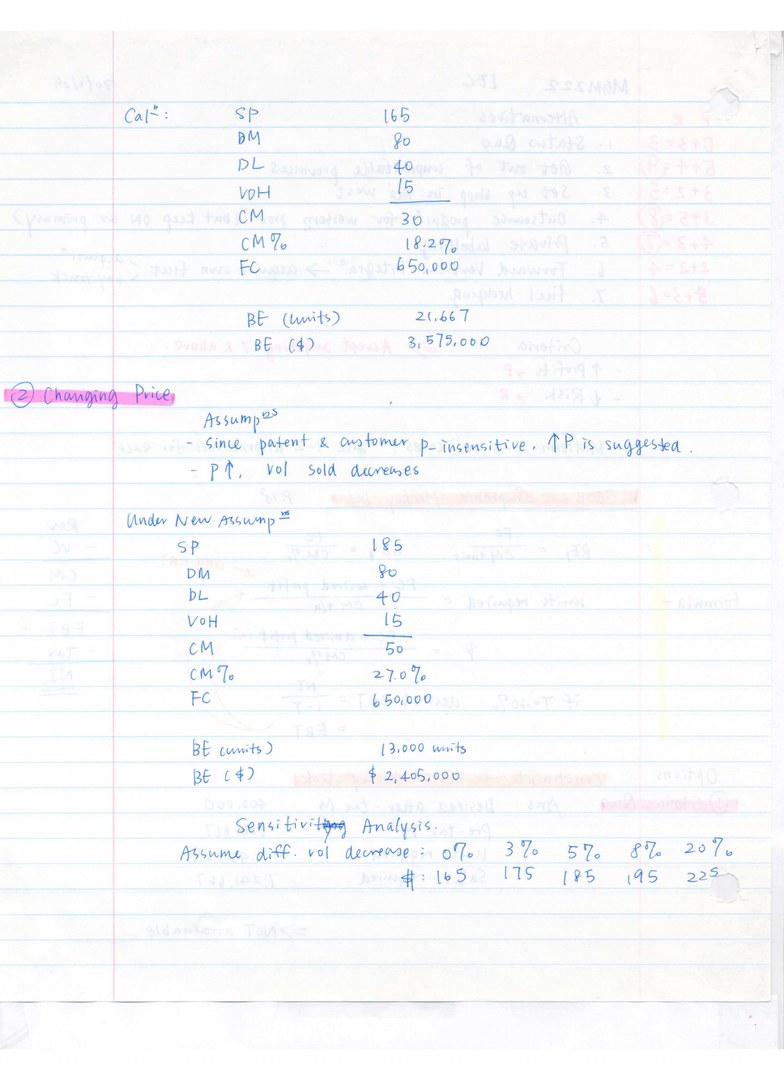 Calⁿ: SP 165
DM 80
DL 40
VOH 15
CM 30
CM% 18.2%
FC 650,000
BE (units) 21,667
BE ($) 3,575,000
② Changing Price
Assumpⁿˢ
- since patent & customer p-insensitive, ↑P is suggested.
- P↑, vol sold decreases
Under New Assumpⁿˢ
SP 185
DM 80
DL 40
VOH 15
CM 50
CM% 27.0%
FC 650,000
BE (units) 13,000 units
BE ($) $ 2,405,000
Sensitivity Analysis.
Assume diff. vol decrease: 0% 3% 5% 8% 20%
$: 165 175 185 195 225